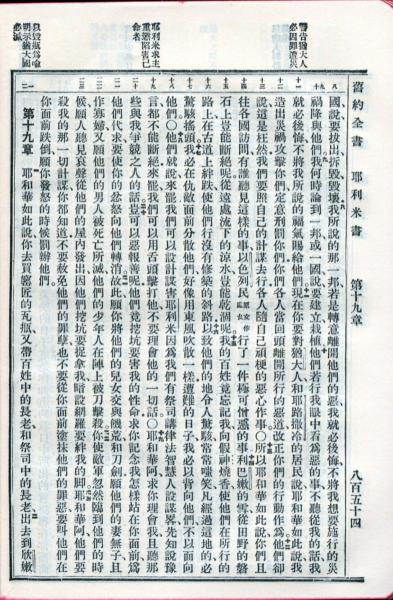 舊約全書 耶利米書 第十九章 八百五十四
警告猶大人必因罪遭災
國說要拔出拆毀毀壞我所說的那一邦若是轉意離開他們的惡我就必後悔不將我想要施行的災
禍降與他們我何時論到一邦或一國說要建立栽植他們若行我眼中看為惡的事不聽從我的話我
就必後悔不將我所說的福氣賜給他們現在你要對猶大人和耶路撒冷的居民說耶和華如此說我
造出災禍攻擊你們定意刑罰你們你們各人當回頭離開所行的惡道改正你們的行動作為他們卻
說這是枉然我們要照自己的計謀去行各人隨自己頑梗的惡心作事○所以耶和華如此說你們且
往各國訪問有誰聽見這樣的事以色列民原文作處女行了一件極可憎惡的事利巴嫩的雪從田野的磐
石上豈能斷絕呢從遠處流下的涼水豈能乾涸呢我的百姓竟忘記我向假神燒香使他們在所行的
路上在古道上絆跌使他們行沒有修築的斜路以致他們的地令人驚駭常常嗤笑凡經過這地的必
驚駭搖頭我必在仇敵面前分散他們好像用東風吹散一樣遭難的日子我必以背向他們不以面向
他們○他們就說來罷我們可以設計謀害耶利米因為我們有祭司講律法智慧人設謀畧先知說豫
耶利米求主重懲陷害己命者
言都不能斷絕來罷我們可以用舌頭擊打他不要理會他的一切話○耶和華阿求你理會我且聽那
些與我爭競之人的話豈可以惡報善呢他們竟挖坑要害我的性命求你記念我怎樣站在你面前為
他們代求要使你的忿怒向他們轉消故此願你將他們的兒女交與饑荒和刀劍願他們的妻無子且
作寡婦又願他們的男人被死亡所滅他們的少年人在陣上被刀擊殺你使敵軍忽然臨到他們的時
候願人聽見哀聲從他們的屋內發出因他們挖坑要捉拿我暗設網羅要絆我的腳耶和華阿他們要
殺我的那一切計謀你都知道不要赦免他們的罪孽也不要從你面前塗抹他們的罪惡要叫他們在
你面前跌倒願你發怒的時候罰辦他們
以毀瓶為喻明示猶大國必滅
第十九章 耶和華如此說你去買窰匠的瓦瓶又帶百姓中的長老和祭司中的長老出去到欣嫩